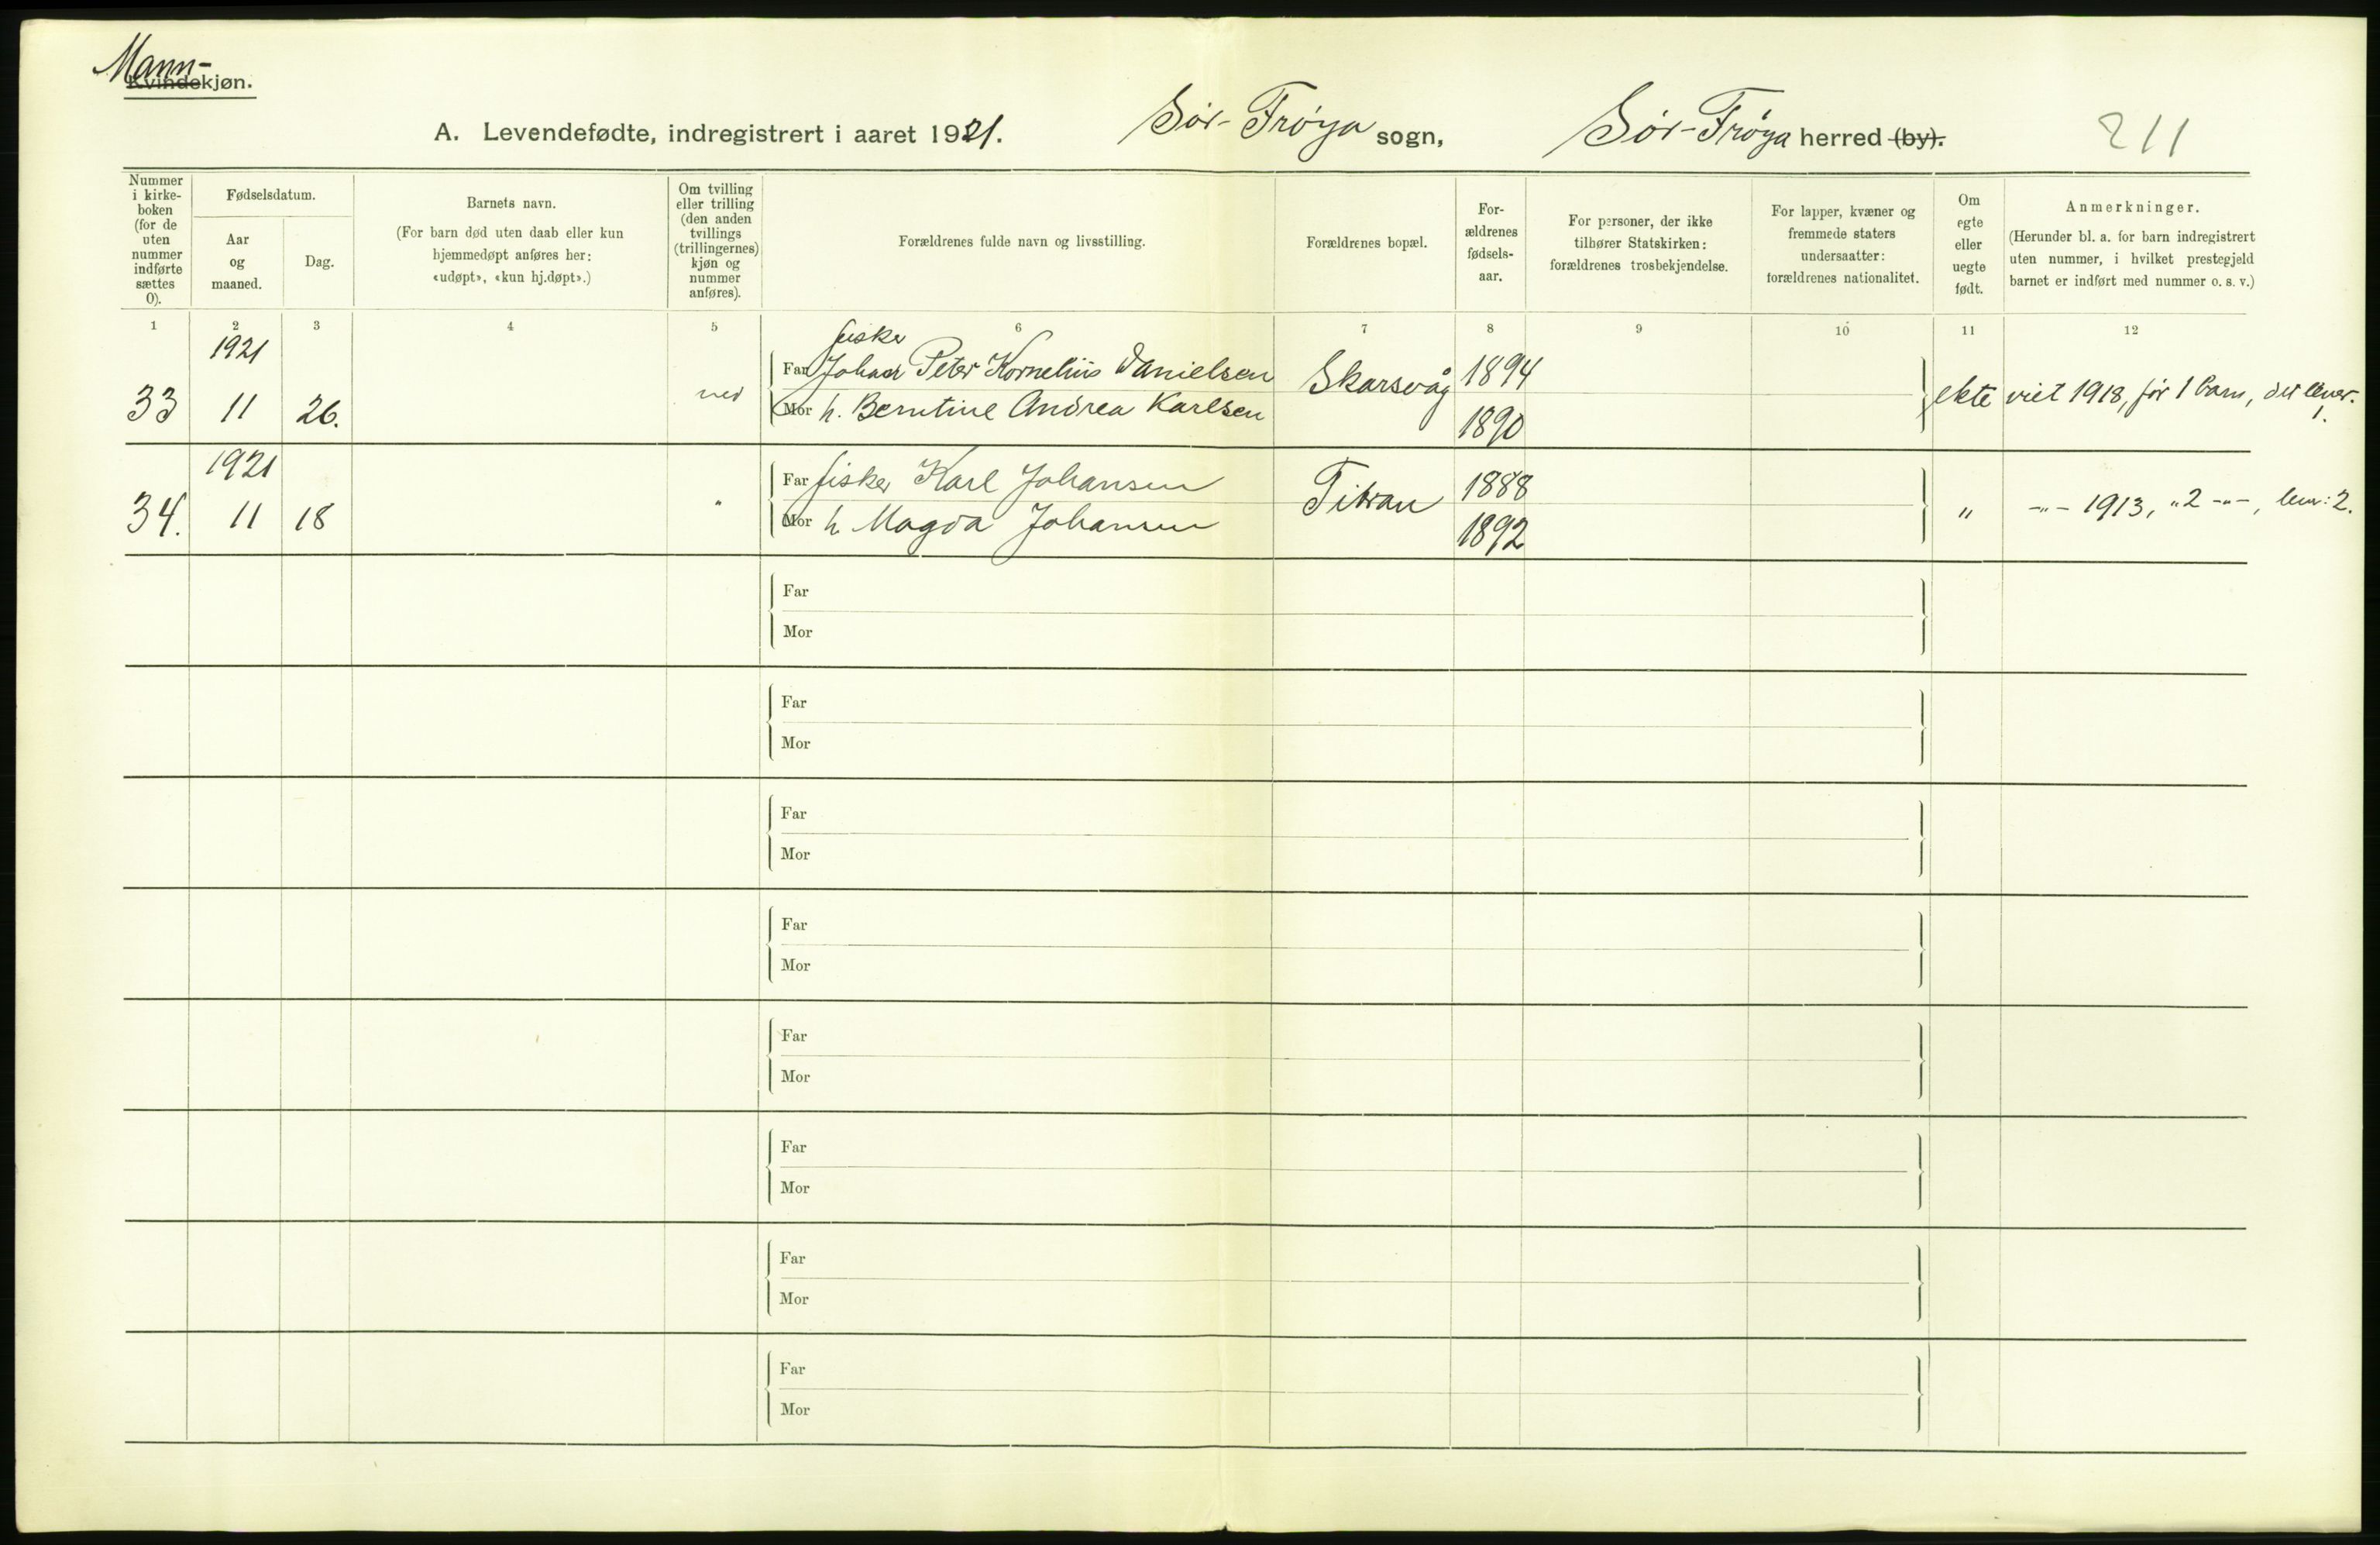 Mann-
Kvindekjøn.
A. Levendefødte, indregistrert i aaret 1921. Sör-Fröya sogn, Sör-Fröya herred (by). 211
Nummer i kirke-boken (for de uten nummer indførte sættes 0).
Fødselsdatum.
Aar og maaned.
Dag.
Barnets navn.
(For barn død uten daab eller kun hjemmedøpt anføres her: «udøpt», «kun hj.døpt».)
Om tvilling eller trilling (den anden tvillings (trillingernes) kjøn og nummer anføres).
Forældrenes fulde navn og livsstilling.
Forældrenes bopæl.
For-ældrenes fødsels-aar.
For personer, der ikke tilhører Statskirken: forældrenes trosbekjendelse.
For lapper, kvæner og fremmede staters undersaatter: forældrenes nationalitet.
Om egte eller uegte født.
Anmerkninger.
(Herunder bl. a. for barn indregistrert uten nummer, i hvilket prestegjeld barnet er indført med nummer o. s. v.)
1 2 3 4 5 6 7 8 9 10 11 12
1921 fisker
Far Johan Peter Kornelius Danielsen Skarsvåg 1894
33 11 26. nei Mor h. Berntine Andrea Karlsen 1890 ekte viet 1918, før 1 barn, det lever. 1.
1921
Far fisker Karl Johansen Titran 1888
34. 11 18 " Mor h. Magda Johansen 1892 " -"- 1913, "2 -"-, lever: 2.
Far
Mor
Far
Mor
Far
Mor
Far
Mor
Far
Mor
Far
Mor
Far
Mor
Far
Mor